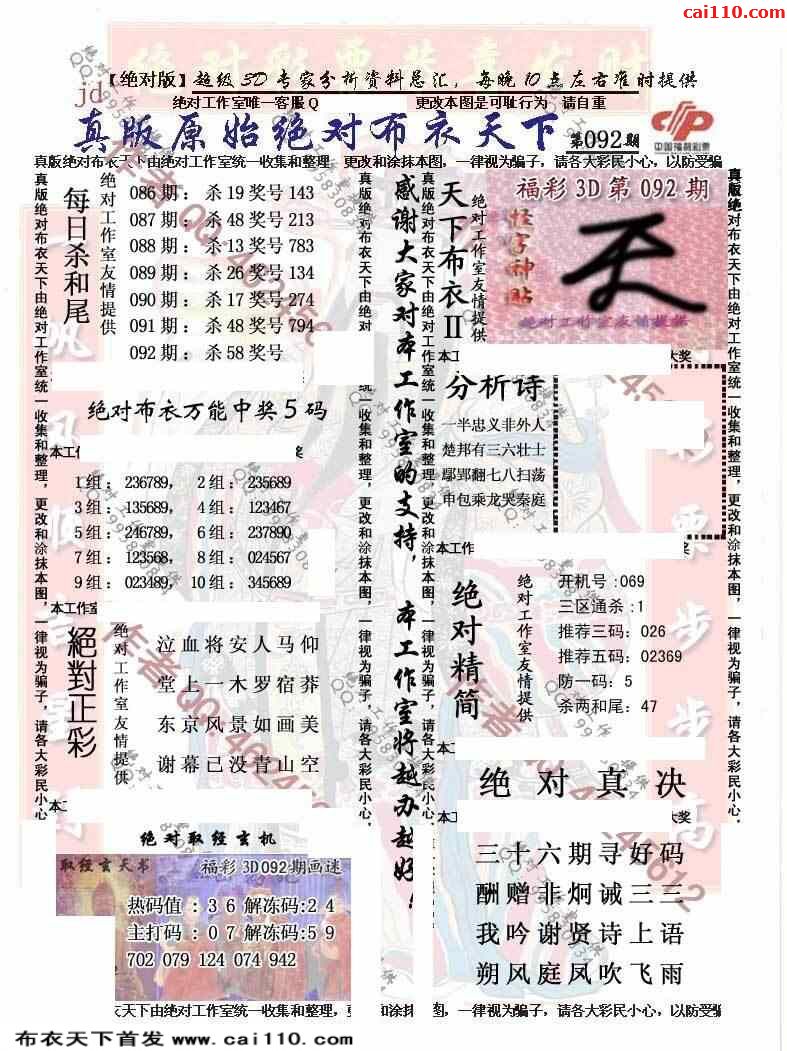 cai110.com
【绝对版】超级3D专家分析资料总汇，每晚10点左右准时提供
jd
绝对工作室唯一客服Q 更改本图是可耻行为 请自重
真版原始绝对布衣天下 第092期
中国福利彩票
真版绝对布衣天下由绝对工作室统一收集和整理 更改和涂抹本图，一律视为骗子，请各大彩民小心，以防受骗
真版绝对布衣天下由绝对工作室统一收集和整理，更改和涂抹本图，一律视为骗子，请各大彩民小心，
每日杀和尾
绝对工作室友情提供
086期：杀19奖号143
087期：杀48奖号213
088期：杀13奖号783
089期：杀26奖号134
090期：杀17奖号274
091期：杀48奖号794
092期：杀58奖号
绝对布衣万能中奖5码
1组：236789， 2组：235689
3组：135689， 4组：123467
5组：246789， 6组：237890
7组：123568， 8组：024567
9组：023489， 10组：345689
本工作室
絕對正彩
绝对工作室友情提供
泣血将安人马仰
堂上一木罗宿莽
东京风景如画美
谢幕已没青山空
绝对取经玄机
取经玄天书 福彩3D092期画谜
热码值：36解冻码:24
主打码：07解冻码:59
702 079 124 074 942
感谢大家对本工作室的支持，本工作室将越办越好！
真版绝对布衣天下由绝对工作室统一收集和整理，更改和涂抹本图，一律视为骗子，请各大彩民小心，
天下布衣II
绝对工作室友情提供
福彩3D第092期
怪字神贴
绝对工作室友情提供
大奖
分析诗
一半忠义非外人
楚邦有三六壮士
鄢郢翻七八扫荡
申包乘龙哭秦庭
本工作
绝对精简
绝对工作室友情提供
开机号:069
三区通杀:1
推荐三码：026
推荐五码：02369
防一码：5
杀两和尾：47
绝对真决
大奖
三十六期寻好码
酬赠非炯诫三三
我吟谢贤诗上语
朔风庭凤吹飞雨
真版绝对布衣天下由绝对工作室统一收集和整理，更改和涂抹本图，一律视为骗子，请各大彩民小心，
衣天下由绝对工作室统一收集和整理，更 和涂抹本图，一律视为骗子，请各大彩民小心，以防受骗
布衣天下首发 www.cai110.com